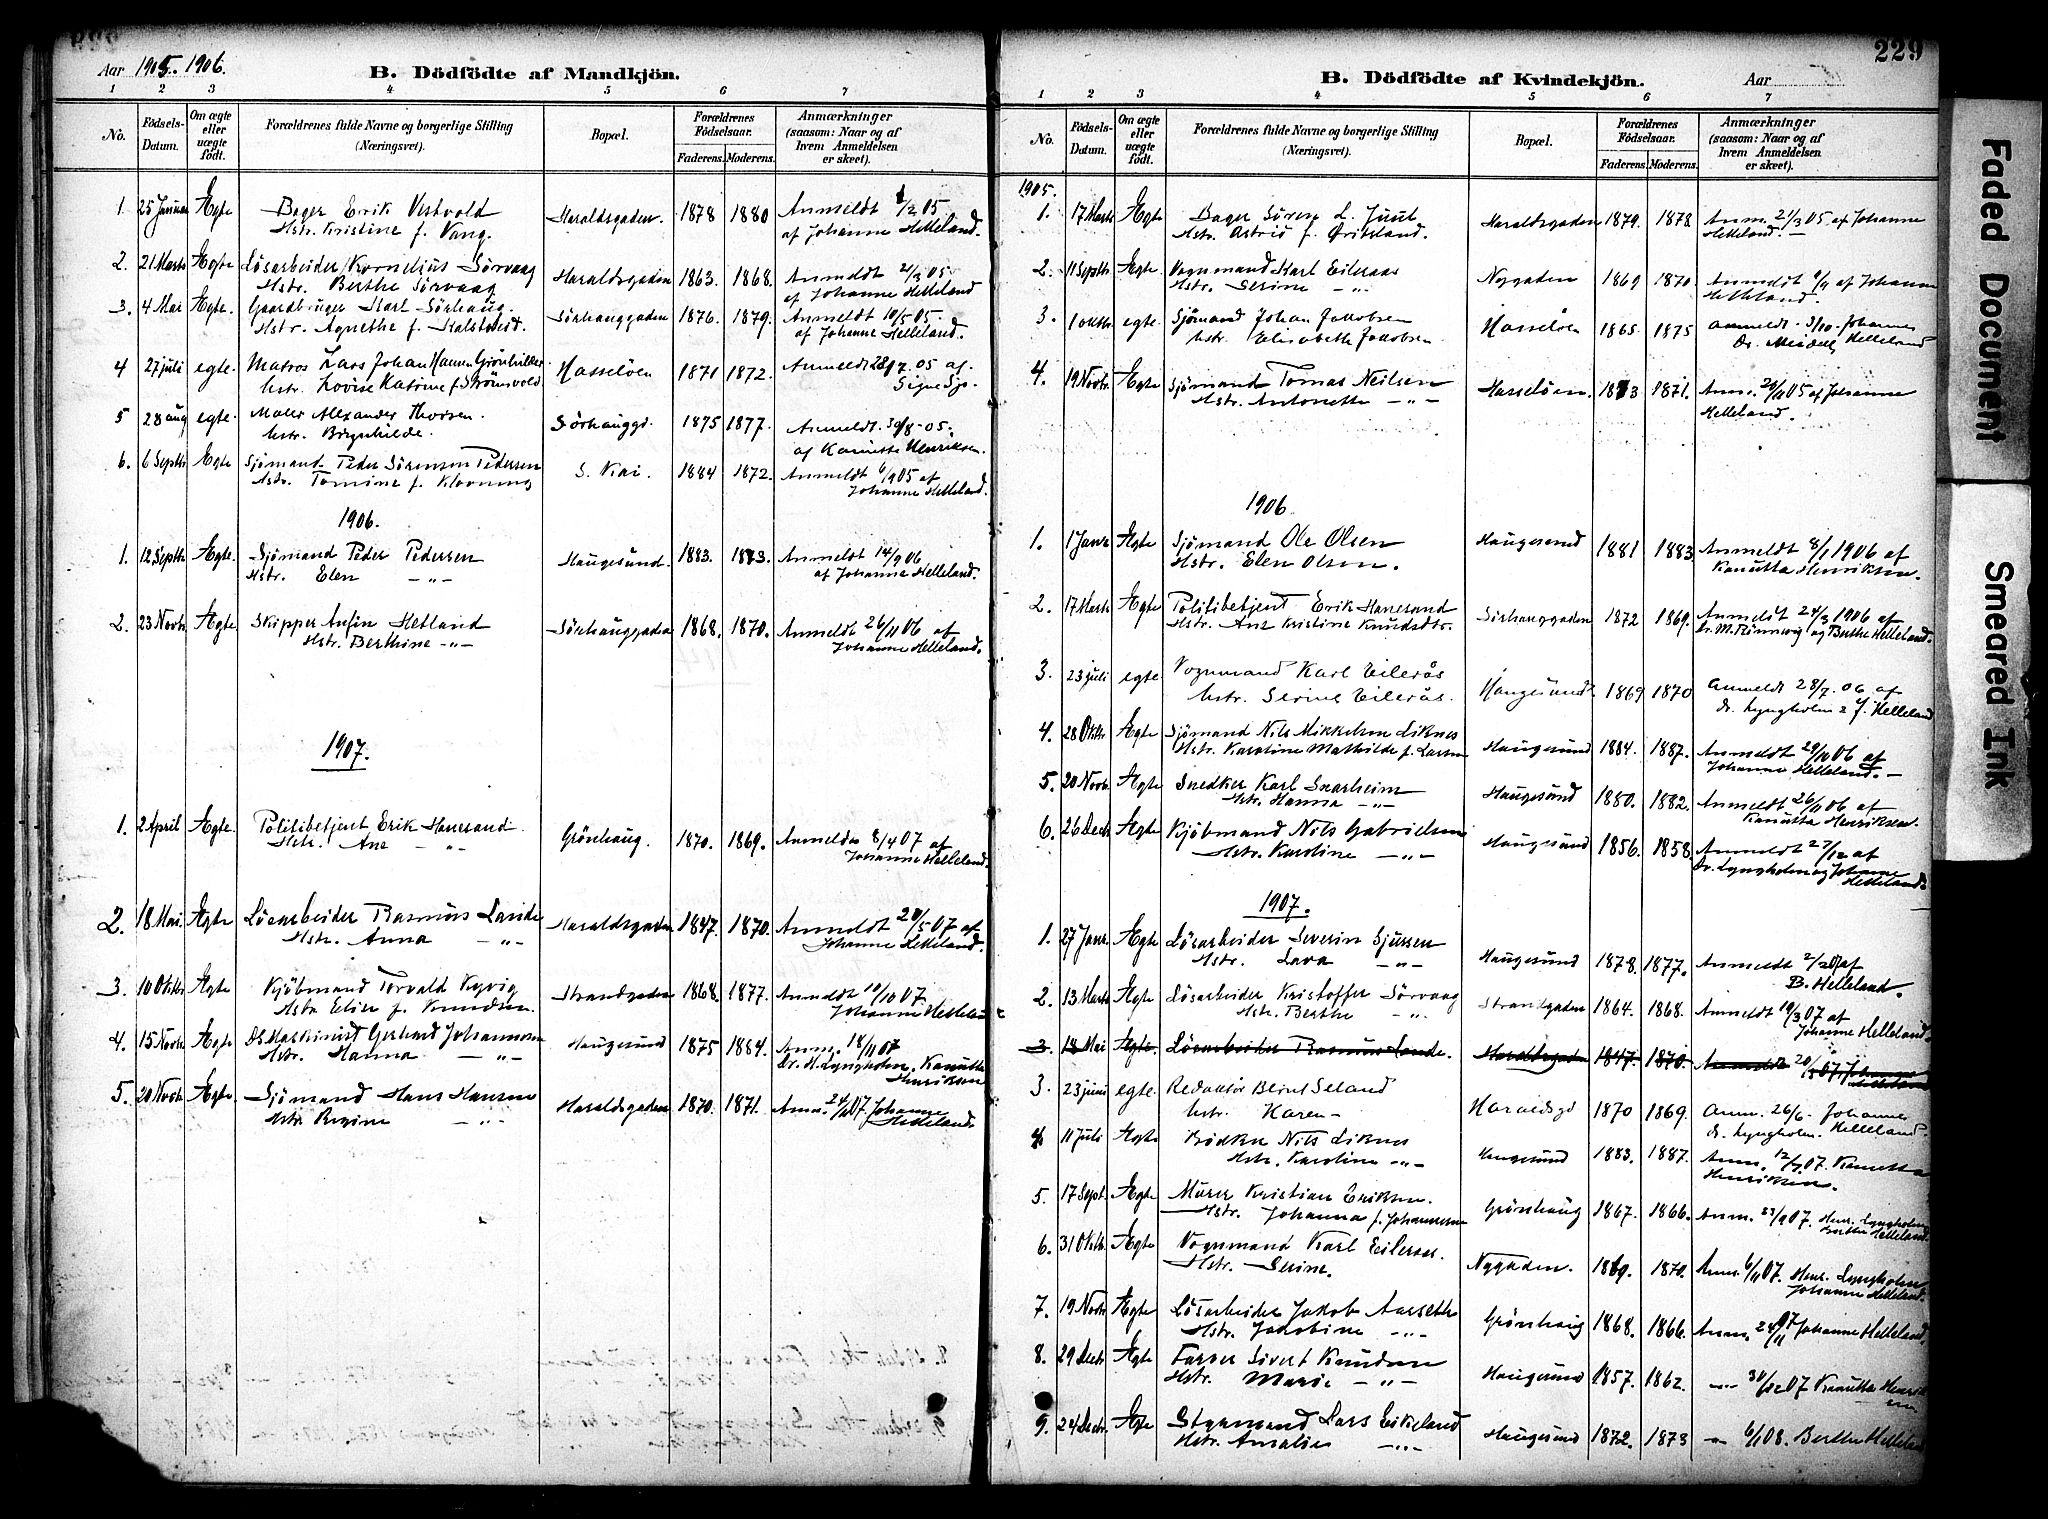 Aar 1905. 1906.
B. Dödfödte af Mandkjön.
1 2 3 4 5 6 7
No. Födsels-Datum. Om ægte eller uægte födt. Forældrenes fulde Navne og borgerlige Stilling (Næringsvei). Bopæl. Forældrenes Födselsaar. Faderens. Moderens. Anmærkninger (saasom: Naar og af hvem Anmeldelsen er skeet).
1. 25 Januar Ægte Bager Erik Vestvold Haraldsgaden. 1878 1880 Anmeldt 1/2 05
Hstr. Kristine f. Vang. af Johanne Helleland.
2. 21 Marts Ægte Lösarbeider Kornelius Sörvaag Haraldsgaden 1863. 1868. Anmeldt 21/3 05.
Hstr. Berthe Sörvaag af Johanne Helleland
3. 4 Mai Ægte. Gaardbruger Karl Sörhaug. Sörhauggaden 1876. 1879. Anmeldt 10/5 05.
Hstr. Agnethe f. af Johanne Helleland.
4 27 juli egte. Matros Lars Johan Hasselöen 1871 1872. Anmeldt 28/7. 05 af
hstr. Lovise Katrine f. Signe
5 28 aug egte. Maler Alexander Thorsen. Sörhauggd. 1875 1877. Anmeldt. 30/8-05.
hstr. Borghilde. af Kanutta Henriksen.
6. 6 Septbr Ægte Sjömand Peder Sörensen Pedersen S. Kai. 1884 1872. Anmeldt 6/9 05 af
Hstr. Tomine f. Klovning Johanne Helleland.
1906.
1. 12 Septbr Ægte. Sjömand Peder Pedersen Haugesund. 1883. 1873. Anmeldt 14/9 06
Hstr. Elen -"- af Johanne Helleland.
2. 23 Novbr Ægte Skipper Anfin Hetland Sörhauggaden 1868. 1870. Anmeldt 26/11 06 af
Hstr. Berthine -"- Johanne Helleland.
1907.
1. 2 April Ægte. Politibetjent Erik Hanesand. Grönhaug. 1870. 1869. Anmeldes 8/4 07 af
Hstr. Ane -"- Johanne Helleland.
2. 18 Mai. Ægte Lösarbeider Rasmus Lande Haraldsgaden 1847. 1870. Anmeldt 20/5 07 af
Hstr. Anna -"- Johanne Helleland.
3. 10 Oktbr Ægte Kjöbmand Torvald Kyvig Strandgaden 1868. 1877. Anmeldt 10/10 07.
Hstr. Elise f. Knudsen. Johanne Helleland
4. 15 Novbr Ægte DS. Maskinist Gerhard Johannesen Haugesund 1875 1884. Anm. 18/11 07
Hstr. Hanna -"- Dr. H. Lyngholm, Kanutta Henriksen
5. 20 Novbr Ægte. Sjömand Hans Hansen Haraldsgaden 1870. 1871. Anm. 24/11 07. Johanne
Hstr. Regine -"- Helleland.
229
B. Dödfödte af Kvindekjön. Aar
1 2 3 4 5 6 7
No. Födsels-Datum. Om ægte eller uægte födt. Forældrenes fulde Navne og borgerlige Stilling (Næringsvei). Bopæl. Forældrenes Födselsaar. Faderens. Moderens. Anmærkninger (saasom: Naar og af hvem Anmeldelsen er skeet).
1905.
1. 17 Marts Ægte Bager Sören L. Juul Haraldsgaden 1879. 1878. Anm. 21/3 05 af Johanne
Hstr. Astrid f. Grindland. Helleland.
2. 11 Septbr Ægte. Vognmand Karl Eileraas Nygaden 1869 1870. Anmeldt af Johanne
Hstr. Serine -"- Helleland.
3. 1 oktbr egte. Sjömand Johan Jakobsen Hasselöen 1865 1875 Anmeldt. 3/10. Johanne
hstr. Elisabeth Jakobsen. Dr. Meidell Helleland
4. 19 Novbr. Ægte Sjömand Tomas Neilsen Hasselöen. 1873 1871. Anm. 20/11 05 af Johanne
Hstr. Antonette -"- Helleland.
1906
1. 1 Januar Ægte Sjömand Ole Olsen Haugesund 1881 1883. Anmeldt 8/1 1906 af
Hstr. Elen Olsen. Kanutta Henriksen.
2. 17 Marts Ægte Politibetjent Erik Hanesand Sörhauggaden 1872 1869. Anmeldt 24/3 1906 af
Hstr. Ane Kristine Knudsdtr. Dr. M. Rönnevig og Berthe Helleland.
3. 23 juli egte Vognmand Karl Eilerås Haugesund 1869 1870 Anmeldt 28/7. 06 af
hstr. Serine Eilerås. dr. Lyngholm & J. Helleland
4. 28 Oktbr Ægte Sjömand Nils Mikkelsen Liknes Haugesund 1884. 1887. Anmeldt 29/10 06 af
Hstr. Karoline Mathilde f. Larsen Johanne Helleland.
5. 20 Novbr. Ægte Snedker Karl Snarheim Haugesund 1880. 1882. Anmeldt 26/11 06 af
Hstr. Hanna -"- Kanutta Henriksen.
6. 26 Decbr Ægte Kjöbmand Nils Gabrielsen Haugesund 1856. 1858. Anmeldt 27/12 af
Hstr. Karoline -"- Dr. Lyngholm og Johanne Helleland
1907.
1. 27 Janr. Ægte Lösarbeider Severin Sjursen Haugesund 1878. 1877. Anmeldt af
Hstr. Lava -"- B. Helleland.
2. 13 Marts Ægte Lösarbeider Kristoffer Sörvaag Strandgaden 1864. 1868. Anmeldt 19/3 07 af
Hstr. Berthe -"- Johanne Helleland.
3. 18 Mai Ægte. Lösarbeider Rasmus Lande. Haraldsgaden 1847. 1870. Anmeldt 20/5 07. Johanne Helleland
3. 23 juni egte. Redaktör Bernt Seland Haraldsgd 1870 1869. Anm. 26/6. Johanne
hstr. Karen - dr. Lyngholm. Helleland.
4. 11 Juli Ægte Bödker Nils Liknes Haugesund 1883. 1887. Anm. 12/7 07. Kanutta
Hstr. Karoline -"- Henriksen.
5. 17 Sept. Ægte Murer Kristian Eriksen. Grönhaug 1867. 1866. Anm. 23/9 07. Henr. Lyngholm
Hstr. Johanna f. Johannesen Berthe Helleland.
6. 31 Oktbr. Ægte Vognmand Karl Eileraas. Nygaden. 1869. 1870. Anm. 6/11 07. Henr. Lyngholm
Hstr. Serine. Johanne Helleland.
7. 19 Novbr Ægte Lösarbeider Jakob Aarseth Grönhaug 1868. 1866. Anm. 24/11 07 Johanne Helleland.
Hstr. Jakobine -"-
8. 29 Decbr Ægte Farver Sivert Knudsen Haugesund 1857. 1862. -"- 30/12 07 Kanutta Henriksen
Hstr. Marie -"-
9. 24 Decbr. Ægte Styrmand Lars Eikeland Haugesund 1872. 1873 -"- 6/1 08. Berthe Helleland
Hstr. Amalie -"-
Faded Document
Smeared Ink